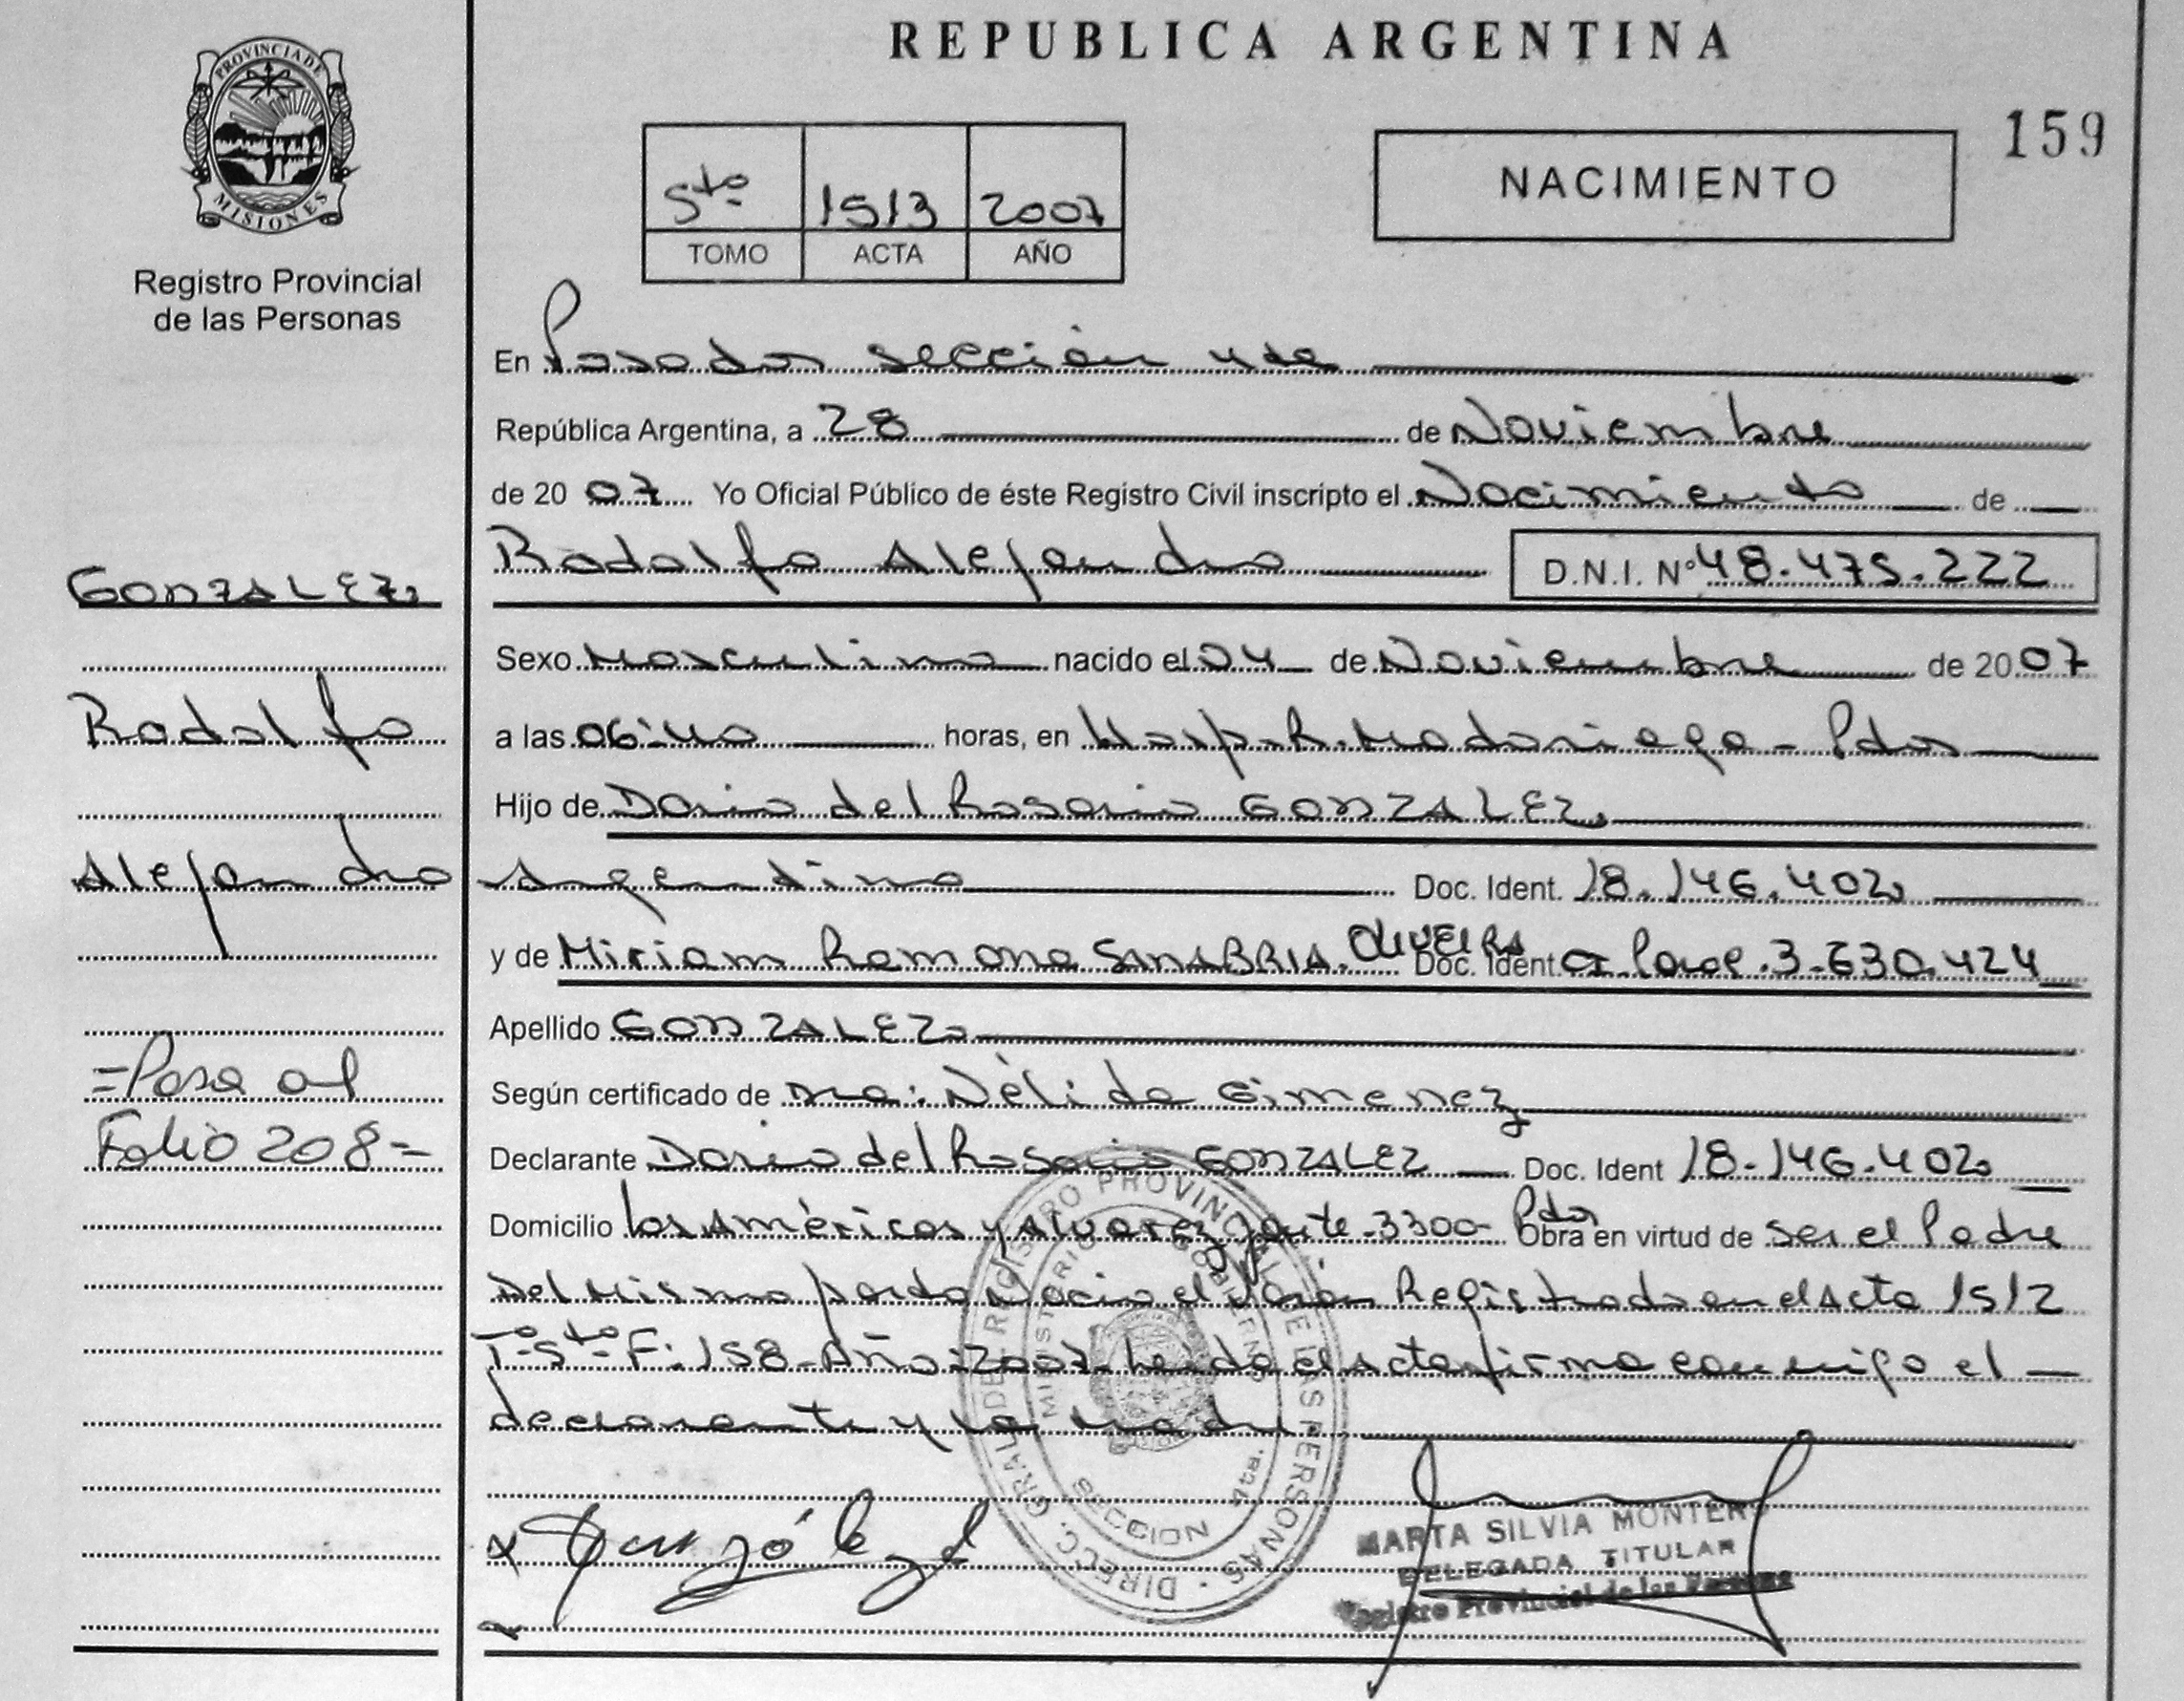 REPUBLICA ARGENTINA
159
PROVINCIA DE
MISIONES
Registro Provincial
de las Personas
5to 1513 2007
TOMO ACTA AÑO
NACIMIENTO
En Posadas sección 4ta
República Argentina, a 28 de Noviembre
de 2007 Yo Oficial Público de éste Registro Civil inscripto el Nacimiento de
Rodolfo Alejandro D.N.I. Nº 48.475.222
GONZALEZ
Rodolfo
Alejandro
=Pasa al
Folio 208=
Sexo Masculino nacido el 04 de Noviembre de 2007
a las 06:40 horas, en Hosp. R. Madariaga - Pdas
Hijo de Dario del Rosario GONZALEZ
Argentino Doc. Ident. 18.146.402
y de Miriam Ramona SANABRIA OliVEIRA Doc. Ident. 3.630.424
Apellido GONZALEZ
Según certificado de Nélida Gimenez
Declarante Dario del Rosario GONZALEZ Doc. Ident 18.146.402
Domicilio las Américas y Alvarez Jonte 3300 Pdas Obra en virtud de ser el Padre
Del Mismo parto Nacio el Varón Registrado en el Acta 1512
Tº 5to F: 158 Año: 2007 leida el Acta firma conmigo el
declarante y la madre
DIRECC. GRAL. DE REGISTRO PROVINCIAL DE LAS PERSONAS
MINISTERIO GOBIERNO
SECCION 4ta.
MARTA SILVIA MONTERO
DELEGADA TITULAR
Registro Provincial de las Personas